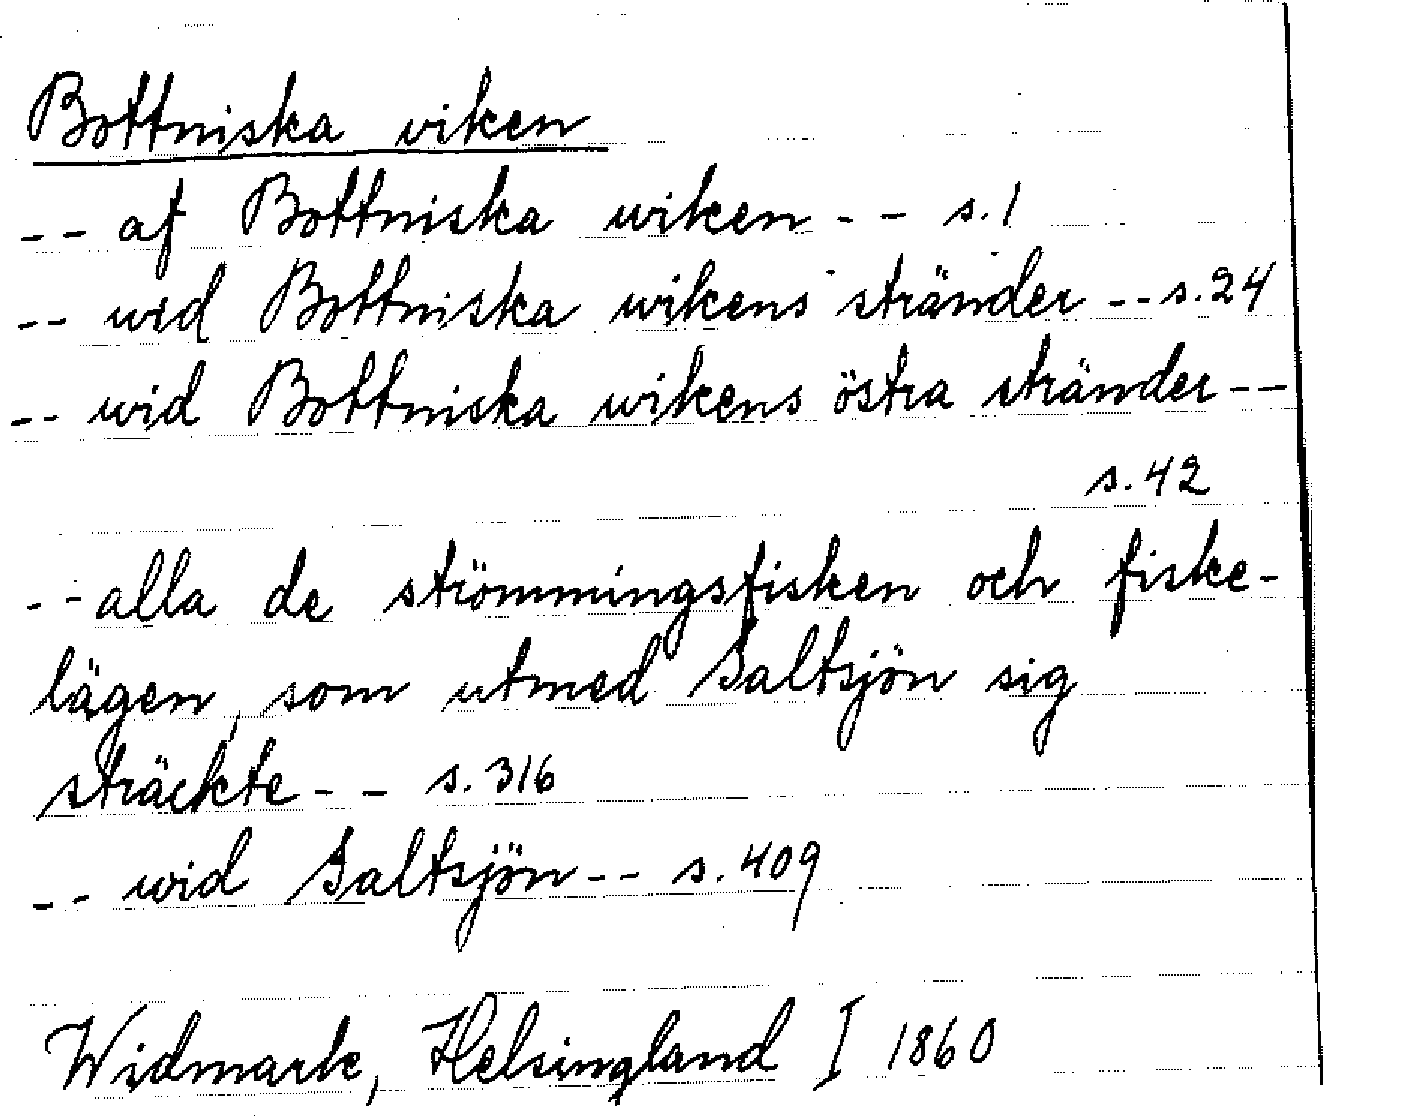 Bottniska viken
-- af Bottniska wiken -- s.1
-- wid Bottniska wikens stränder -- s.24
-- wid Bottniska wikens östra stränder --
s.42
-- alla de strömmingsfisken och fiske-
lägen, som utmed Saltsjön sig
sträckte -- s.316
-- wid Saltsjön -- s.409
Widmark, Helsingland I 1860